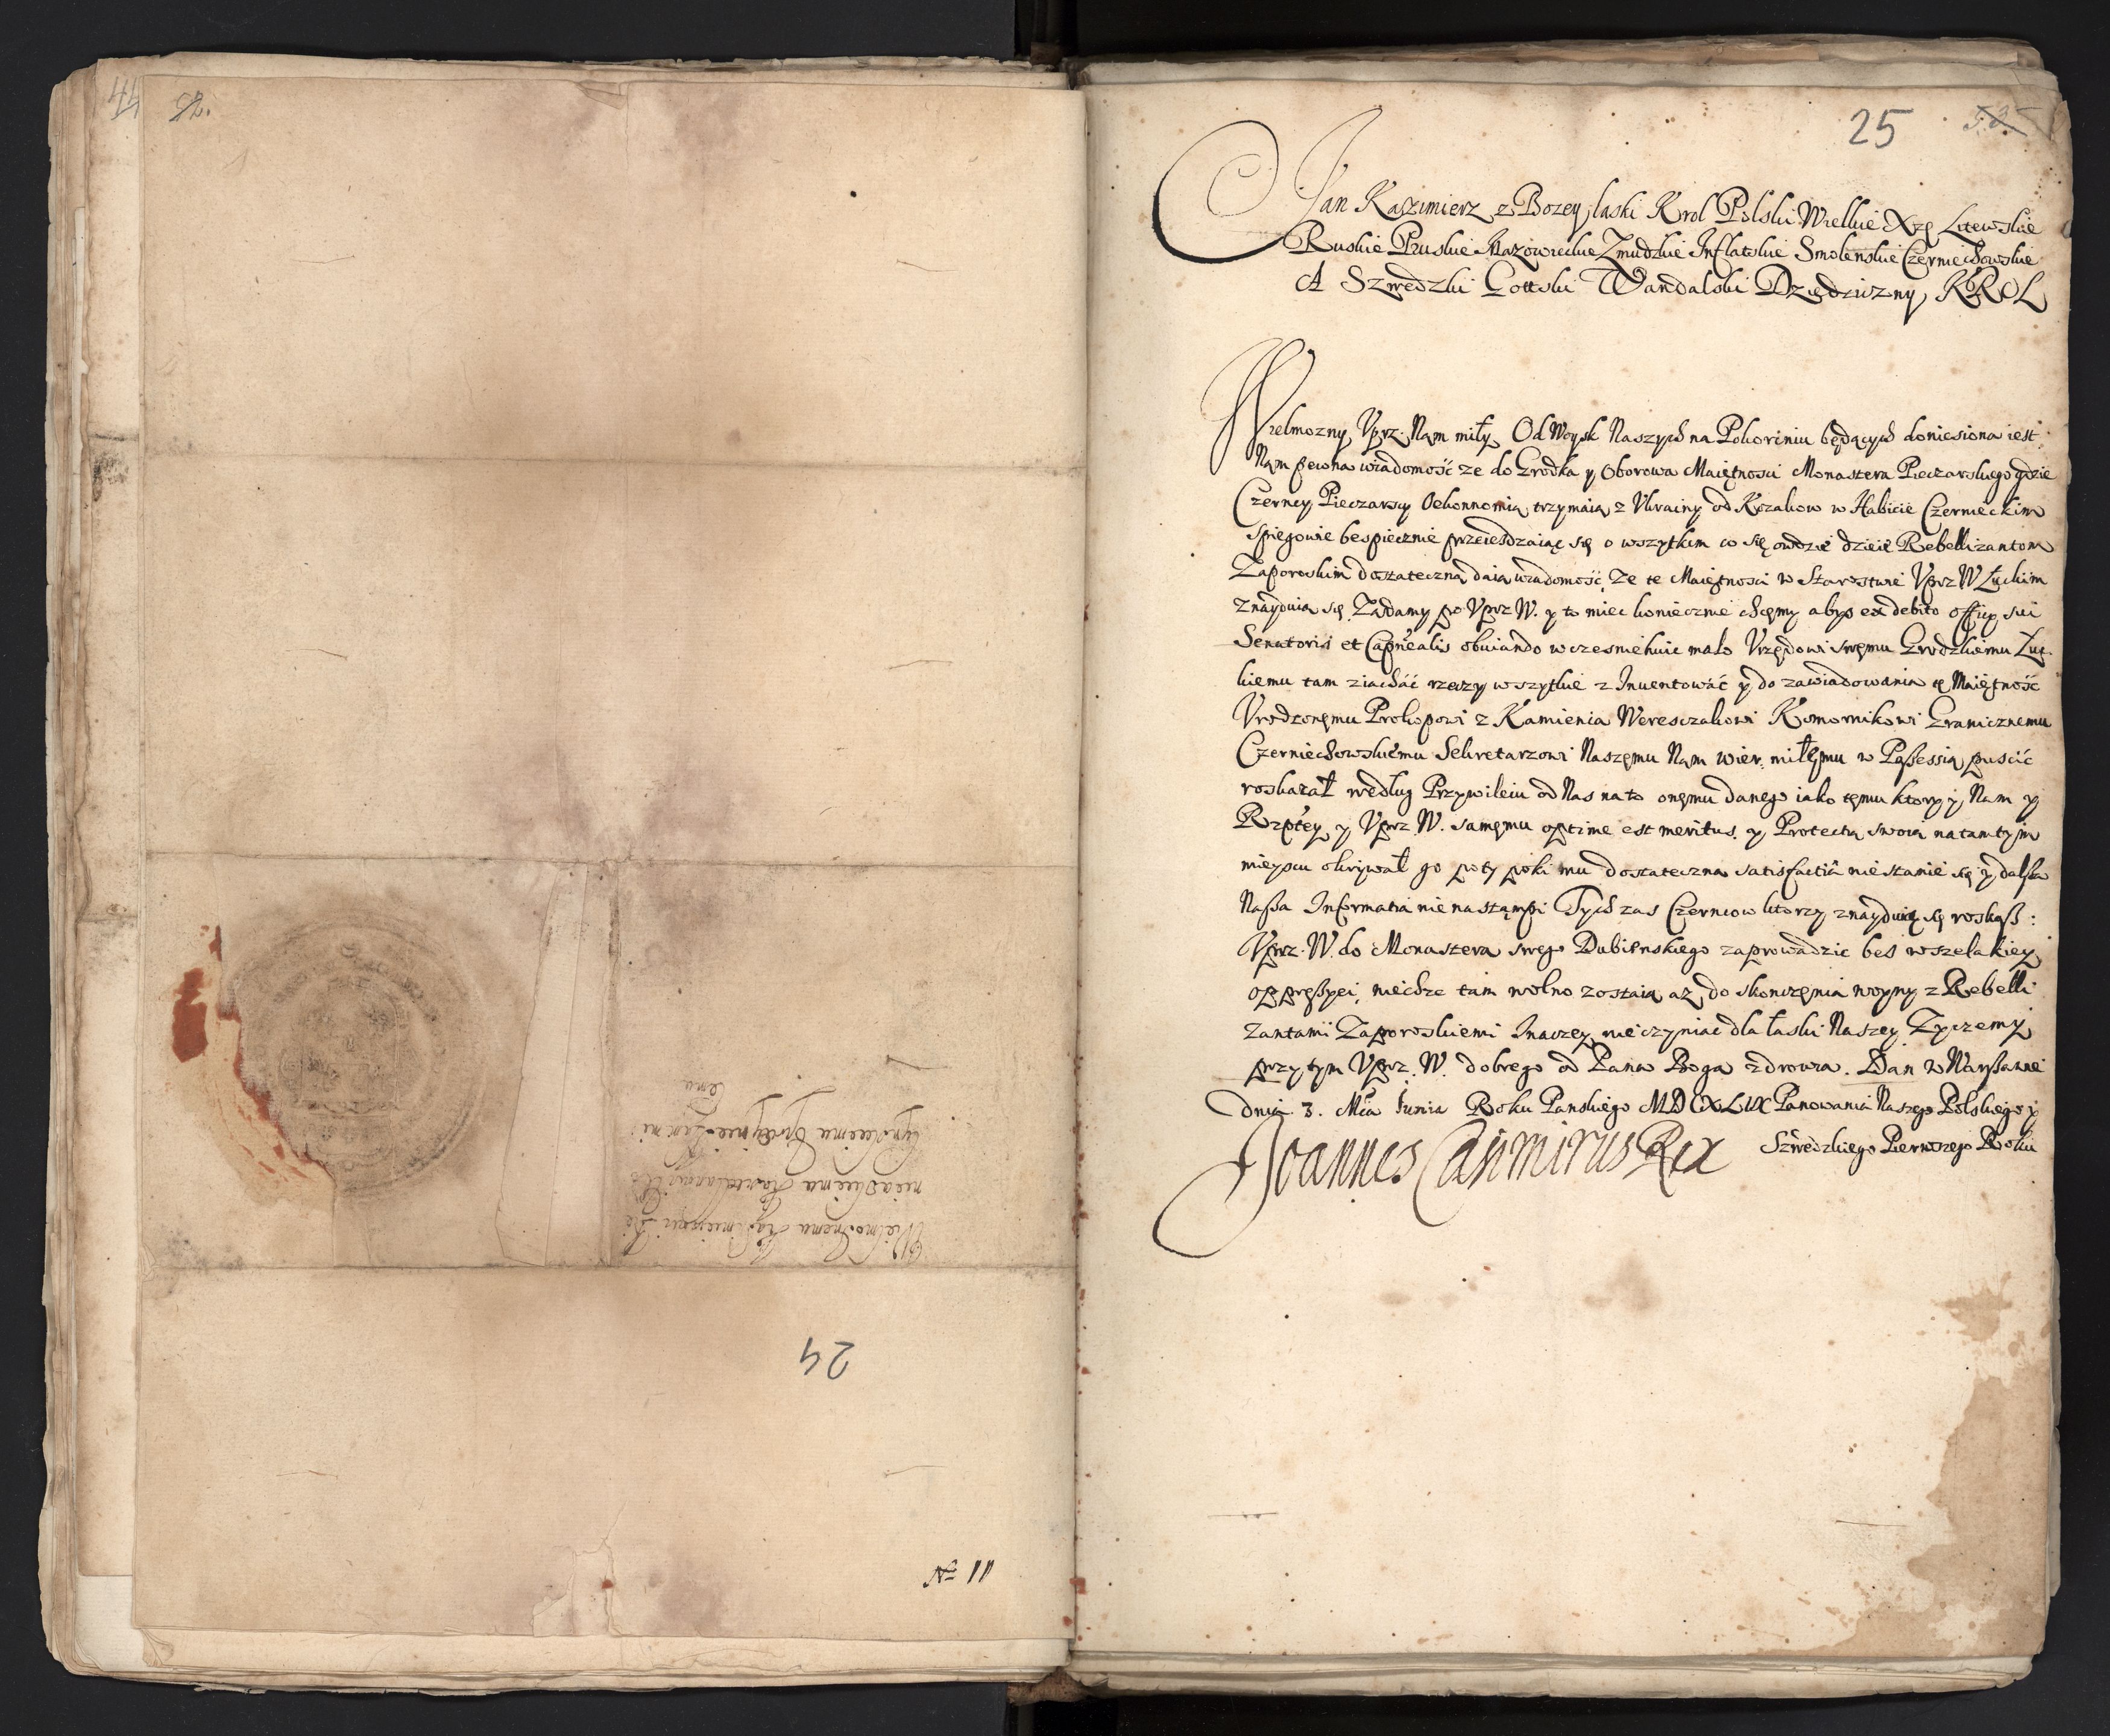 44
25
Wielmoznemu
24
N= 11
25
Jan Kazimierz z Bozey laski Krol Polski Wielkie Xzę Litewskie
Ruskie Pruskie Mazowieckie Zmudzkie Inflatskie Smolenskie Czerniechowskie
A Szwedzki Gottski Wandalski Dziedziczny KROL
Wielmozny Vprz. Nąm miły. Od Woysk Naszych na Pohoriniu będących doniesiona iest
Nąm pewna wiadomość ze do Grodka y Oborowa Maiętnosci Monastera Pieczarskiego gdzie
Czerncy Pieczarscy Oekonnomią trzymaią z Vkrainy od Kozakow w Habicie Czernieckim
Spiegowie bespiecznie przeiezdzaiąc się o wszytkim co się owdzie dzieie Rebellizantom
Zaporoskim dostateczną daią wiadomość, Ze te Maiętnosci w Starostwie Vprz W Łuckim
znayduią się, Ządamy po Vprz W. y to miec koniecznie chcęmy abys ex debito officij sui
Senatoris et Capnealis obuiando wczesnie huic malo Vrzędowi swęmu Grodzkiemu Łuc-
kiemu tam ziachać rzeczy wszytkie z Inuentować y do zawiadowania tę Maiętność
Vrodzonęmu Prokopowi z Kamienia Weresczakowi Komornikowi Granicznemu
Czerniechowskiemu Sekretarzowi Naszęmu Nąm wier. miłęmu w Possessią puscić
roskazał według Przywileiu od Nas na to onęmu danego iako tęmu ktory y Nam y
Rzptey y Vprz W. samęmu optime est meritus. y Protectią swoią na tamtym
mieyscu okrywał go poty poki mu dostateczna satisfactia nie stanie się y dalsza
Nasza Informatia nie nastąmpi Tych zas Czerncow ktorzy znayduią się roskasz:
Vprz. W. do Monastera swego Dubienskiego zaprowadzic bes wszelakiey
oppressyei, niechze tam wolno zostaią az do skonczęnia woyny z Rebelli
zantami Zaporoskiemi Inaczey nie czyniac dla łaski Naszey Zyczemy
przytym Vprz. W. dobrego od Pana Boga zdrowia. Dan w Warszawie
dnia 3. Mca Iunia Roku Panskiego MDCXLIX Panowania Naszego Polskiego y
Szwedzkiego Pierwszego Roku
Joannes Casimirus Rex